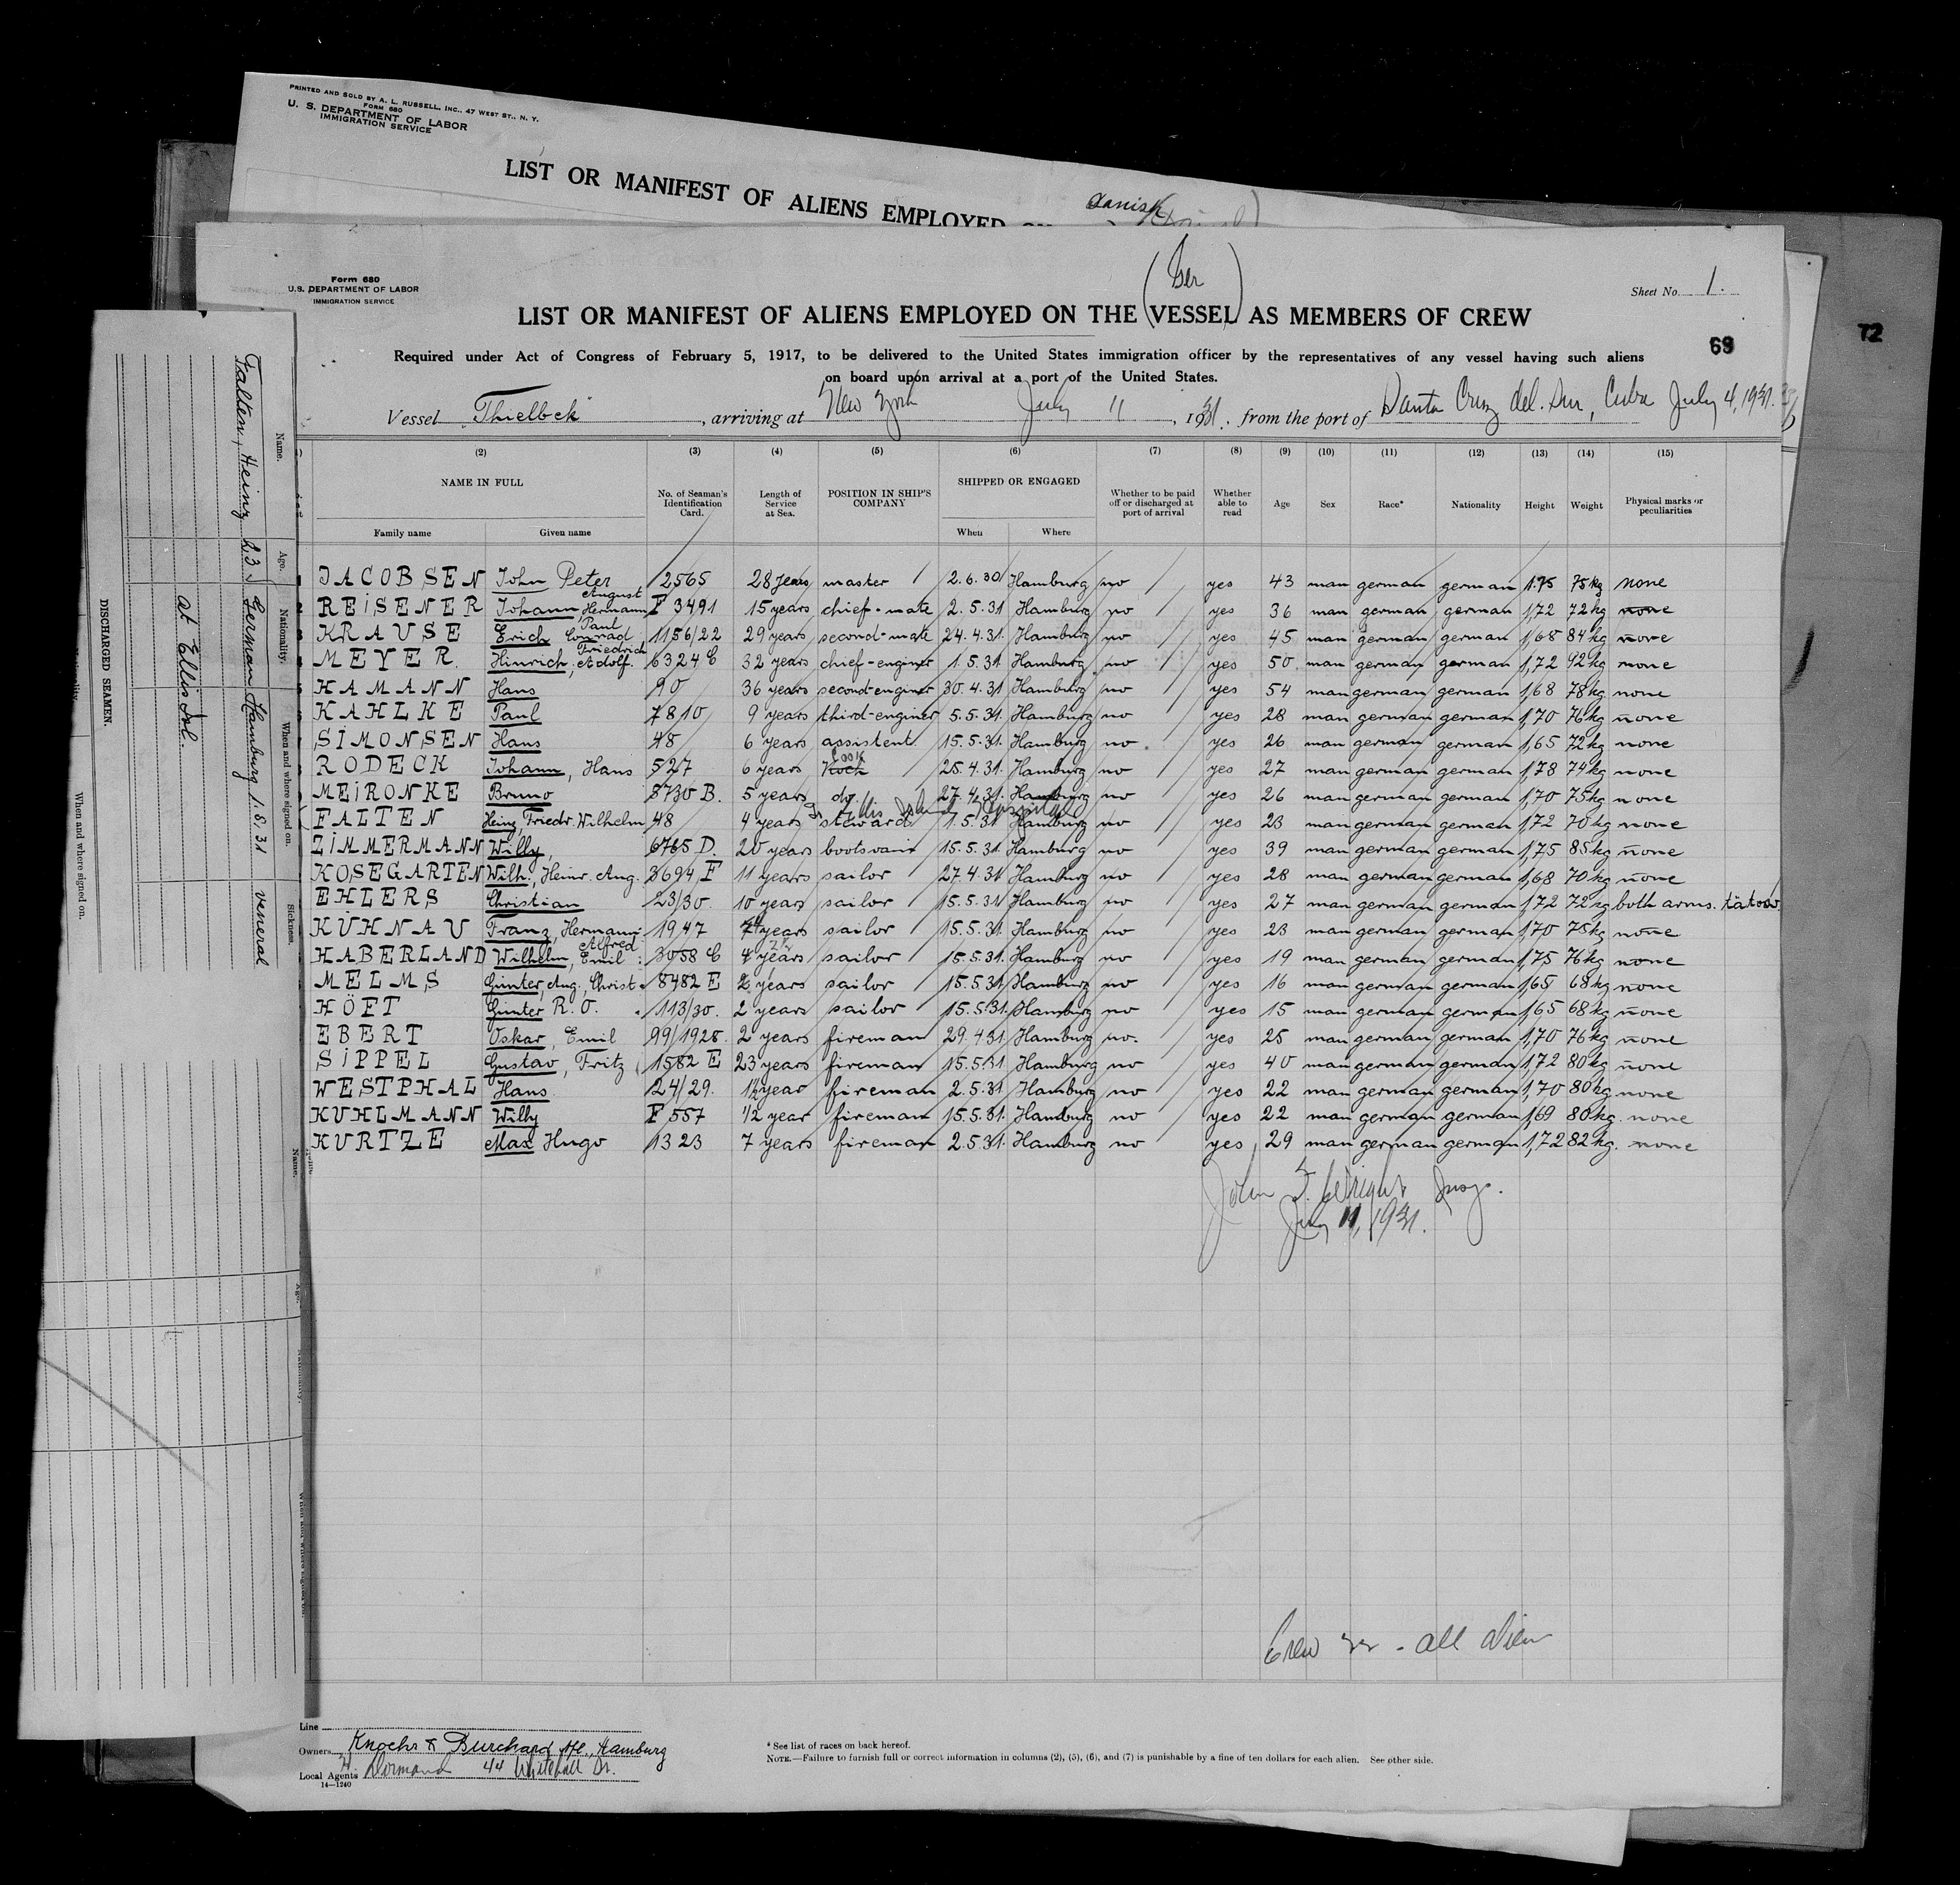 PRINTED AND SOLD BY A. L. RUSSELL, INC., 47 WEST ST., N. Y.
FORM 680
U. S. DEPARTMENT OF LABOR
IMMIGRATION SERVICE
LIST OR MANIFEST OF ALIENS EMPLOYED ON
danish
72
Form 680
U.S. DEPARTMENT OF LABOR
IMMIGRATION SERVICE
(Ger)
Sheet No. 1.
LIST OR MANIFEST OF ALIENS EMPLOYED ON THE VESSEL AS MEMBERS OF CREW
69
Required under Act of Congress of February 5, 1917, to be delivered to the United States immigration officer by the representatives of any vessel having such aliens
on board upon arrival at a port of the United States.
Vessel "Thielbek", arriving at New York July 11, 1931, from the port of Santa Cruz del Sur, Cuba July 4, 1931.
(2) (3) (4) (5) (6) (7) (8) (9) (10) (11) (12) (13) (14) (15)
NAME IN FULL No. of Seaman's Identification Card. Length of Service at Sea. POSITION IN SHIP'S COMPANY SHIPPED OR ENGAGED Whether to be paid off or discharged at port of arrival Whether able to read Age Sex Race* Nationality Height Weight Physical marks or peculiarities
Family name Given name When Where
JACOBSEN John Peter 2565 28 years master 2.6.30 Hamburg no yes 43 man german german 1.75 75kg none
REISENER Johann August Hermann F 3491 15 years chief-mate 2.5.31 Hamburg no yes 36 man german german 1,72 72kg none
KRAUSE Erich Paul Conrad 1156/22 29 years second-mate 24.4.31. Hamburg no yes 45 man german german 1,68 84kg none
MEYER. Hinrich, Friedrich Adolf. 6324 C 32 years chief-enginer 1.5.31 Hamburg no yes 50 man german german 1,72 92kg none
HAMANN Hans 90 36 years second-enginer 30.4.31 Hamburg no yes 54 man german german 1,68 78kg none
KAHLKE Paul 7810 9 years third-enginer 5.5.31. Hamburg no yes 28 man german german 1,70 76kg none
SIMONSEN Hans 48 6 years assistent 15.5.31. Hamburg no yes 26 man german german 1,65 72kg none
RODECK Johann, Hans 527 6 years Koch Cook 28.4.31. Hamburg no yes 27 man german german 1,78 74kg none
MEIRONKE Bruno 8730 B. 5 years do. 27.4.31. Hamburg no yes 26 man german german 1,70 75kg none
In Ellis Island Hospital
FALTEN Heinz Friedr. Wilhelm 48 4 years steward 1.5.31 Hamburg no yes 23 man german german 1,72 70kg none
ZIMMERMANN Willy, 6765 D. 20 years bootsvain 15.5.31. Hamburg no yes 39 man german german 1,75 85kg none
KOSEGARTEN Wilh., Heinr. Aug. 3694 F 11 years sailor 27.4.31 Hamburg no yes 28 man german german 1,68 70kg none
EHLERS Christian 23/30. 10 years sailor 15.5.31 Hamburg no yes 27 man german german 1,72 72kg both arms. tätoov.
KÜHNAU Franz, Hermann 1947 7 years sailor 15.5.31. Hamburg no yes 23 man german german 1,70 75kg none
HABERLAND Wilhelm, Alfred Emil 3058 C 4 years sailor 15.5.31. Hamburg no yes 19 man german german 1,75 76kg none
MELMS Günter, Aug., Christ. 8482 E 2 years sailor 15.5.31 Hamburg no yes 16 man german german 1,65 68kg none
HÖFT Günter R. O. 113/30. 2 years sailor 15.5.31. Hamburg no yes 15 man german german 1,65 68kg none
EBERT Oskar, Emil 99/1928. 2 years fireman 29.4.31 Hamburg no. yes 25 man german german 1,70 76kg none
SIPPEL Gustav, Fritz 1582 E 23 years fireman 15.5.31 Hamburg no yes 40 man german german 1,72 80kg none
WESTPHAL Hans 24/29. 1½ year fireman 2.5.31. Hamburg no yes 22 man german german 1,70 80kg none
KUHLMANN Willy F 557 1/2 year fireman 15.5.31. Hamburg no yes 22 man german german 1,69 80kg. none
KURTZE Max Hugo 1323 7 years fireman 2.5.31. Hamburg no yes 29 man german german 1,72 82kg. none
John S. Wright Insp.
July 11, 1931.
Crew 22 - all alien
Line
Owners Knoehr & Burchard Nfl., Hamburg
Local Agents H. Dormand 44 Whitehall St.
14—1240
* See list of races on back hereof.
NOTE.—Failure to furnish full or correct information in columns (2), (5), (6), and (7) is punishable by a fine of ten dollars for each alien. See other side.
DISCHARGED SEAMEN.
Name. Age. Nationality. When and where signed on. Sickness.
Falten, Heinz 23 J German Hamburg 1.5.31 veneral
at Ellis Isl.
When and where signed on.
Name.